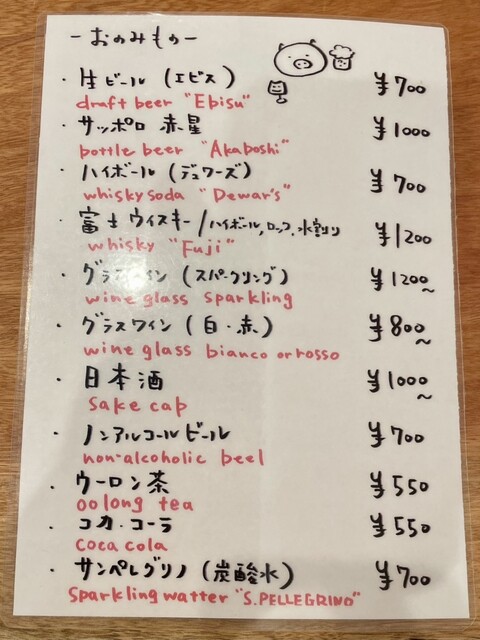 -おのみもの-
・生ビール (エビス) ¥700
draft beer "Ebisu"
・サッポロ 赤星 ¥1000
bottle beer "Akaboshi"
・ハイボール (デュワーズ) ¥700
whisky soda "Dewar's"
・富士ウイスキー/ハイボール,ロック,水割り ¥1200
whisky "Fuji"
・グラスワイン (スパークリング) ¥1200~
wine glass sparkling
・グラスワイン (白・赤) ¥800~
wine glass bianco or rosso
・日本酒 ¥1000~
sake cap
・ノンアルコールビール ¥700
non-alcoholic beel
・ウーロン茶 ¥550
oolong tea
・コカ・コーラ ¥550
coca cola
・サンペレグリノ (炭酸水) ¥700
sparkling watter "S.PELLEGRINO"